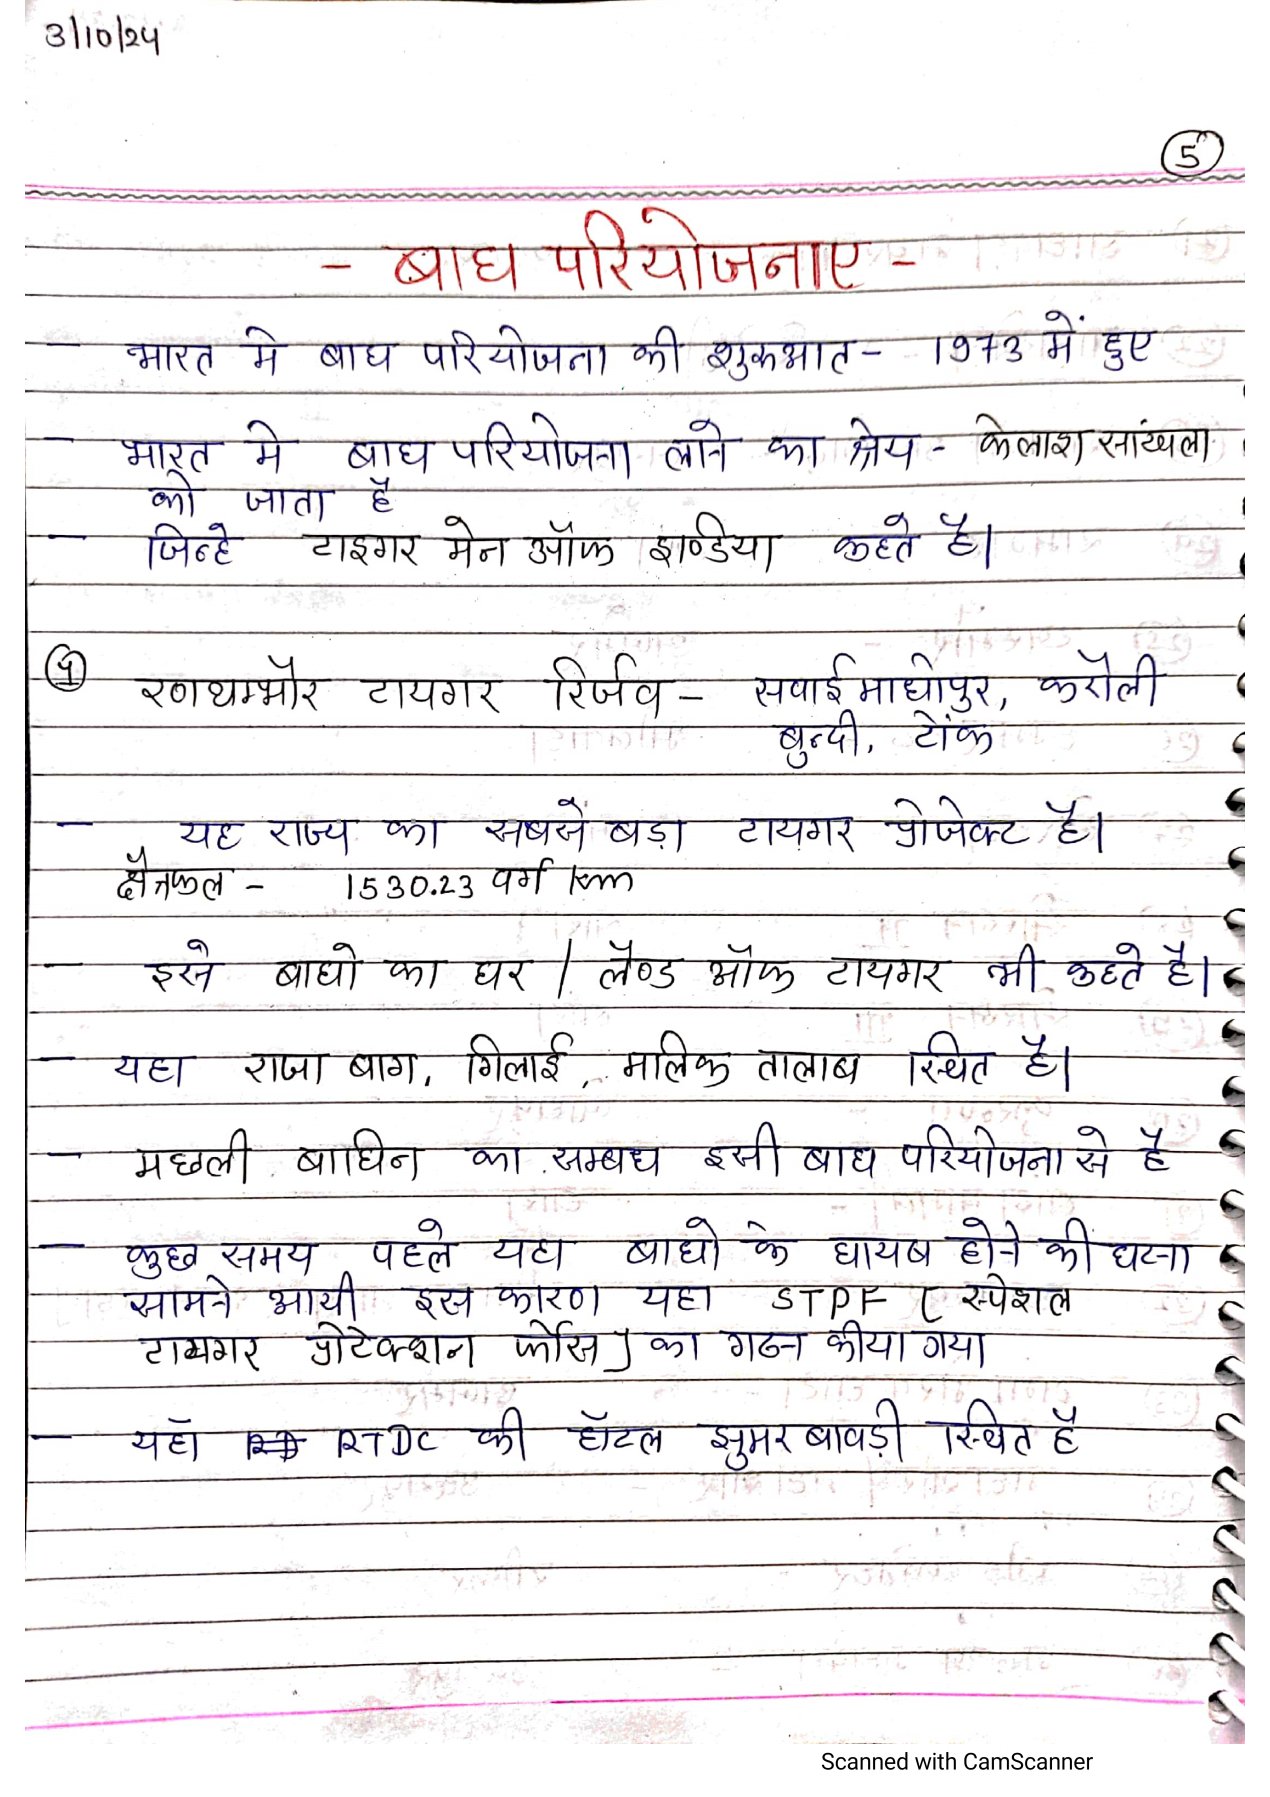 3/10/24
5
- बाघ परियोजनाए -
- भारत मे बाघ परियोजना की शुरूआत - 1973 में हुए
- भारत मे बाघ परियोजना लाने का श्रेय - केलाश सांखला
को जाता है
- जिन्हे टाइगर मेन ऑफ इण्डिया कहते है।
१ रणथम्भौर टायगर रिर्जव - सवाई माधोपुर, करौली
बुन्दी, टोंक
- यह राज्य का सबसे बड़ा टायगर प्रोजेक्ट है।
क्षैत्रफल - 1530.23 वर्ग km
- इसे बाघो का घर / लैण्ड ऑफ टायगर भी कहते है।
- यहा राजा बाग, गिलाई, मलिक तालाब स्थित है।
- मछली बाघिन का सम्बध इसी बाघ परियोजना से है
- कुछ समय पहले यहा बाघो के घायब होने की घटना
सामने आयी इस कारण यहा STPF ( स्पेशल
टायगर प्रोटेक्शन फोर्स ) का गठन कीया गया
- यहॉ RTDC की हॉटल झुमर बावड़ी स्थित है
Scanned with CamScanner